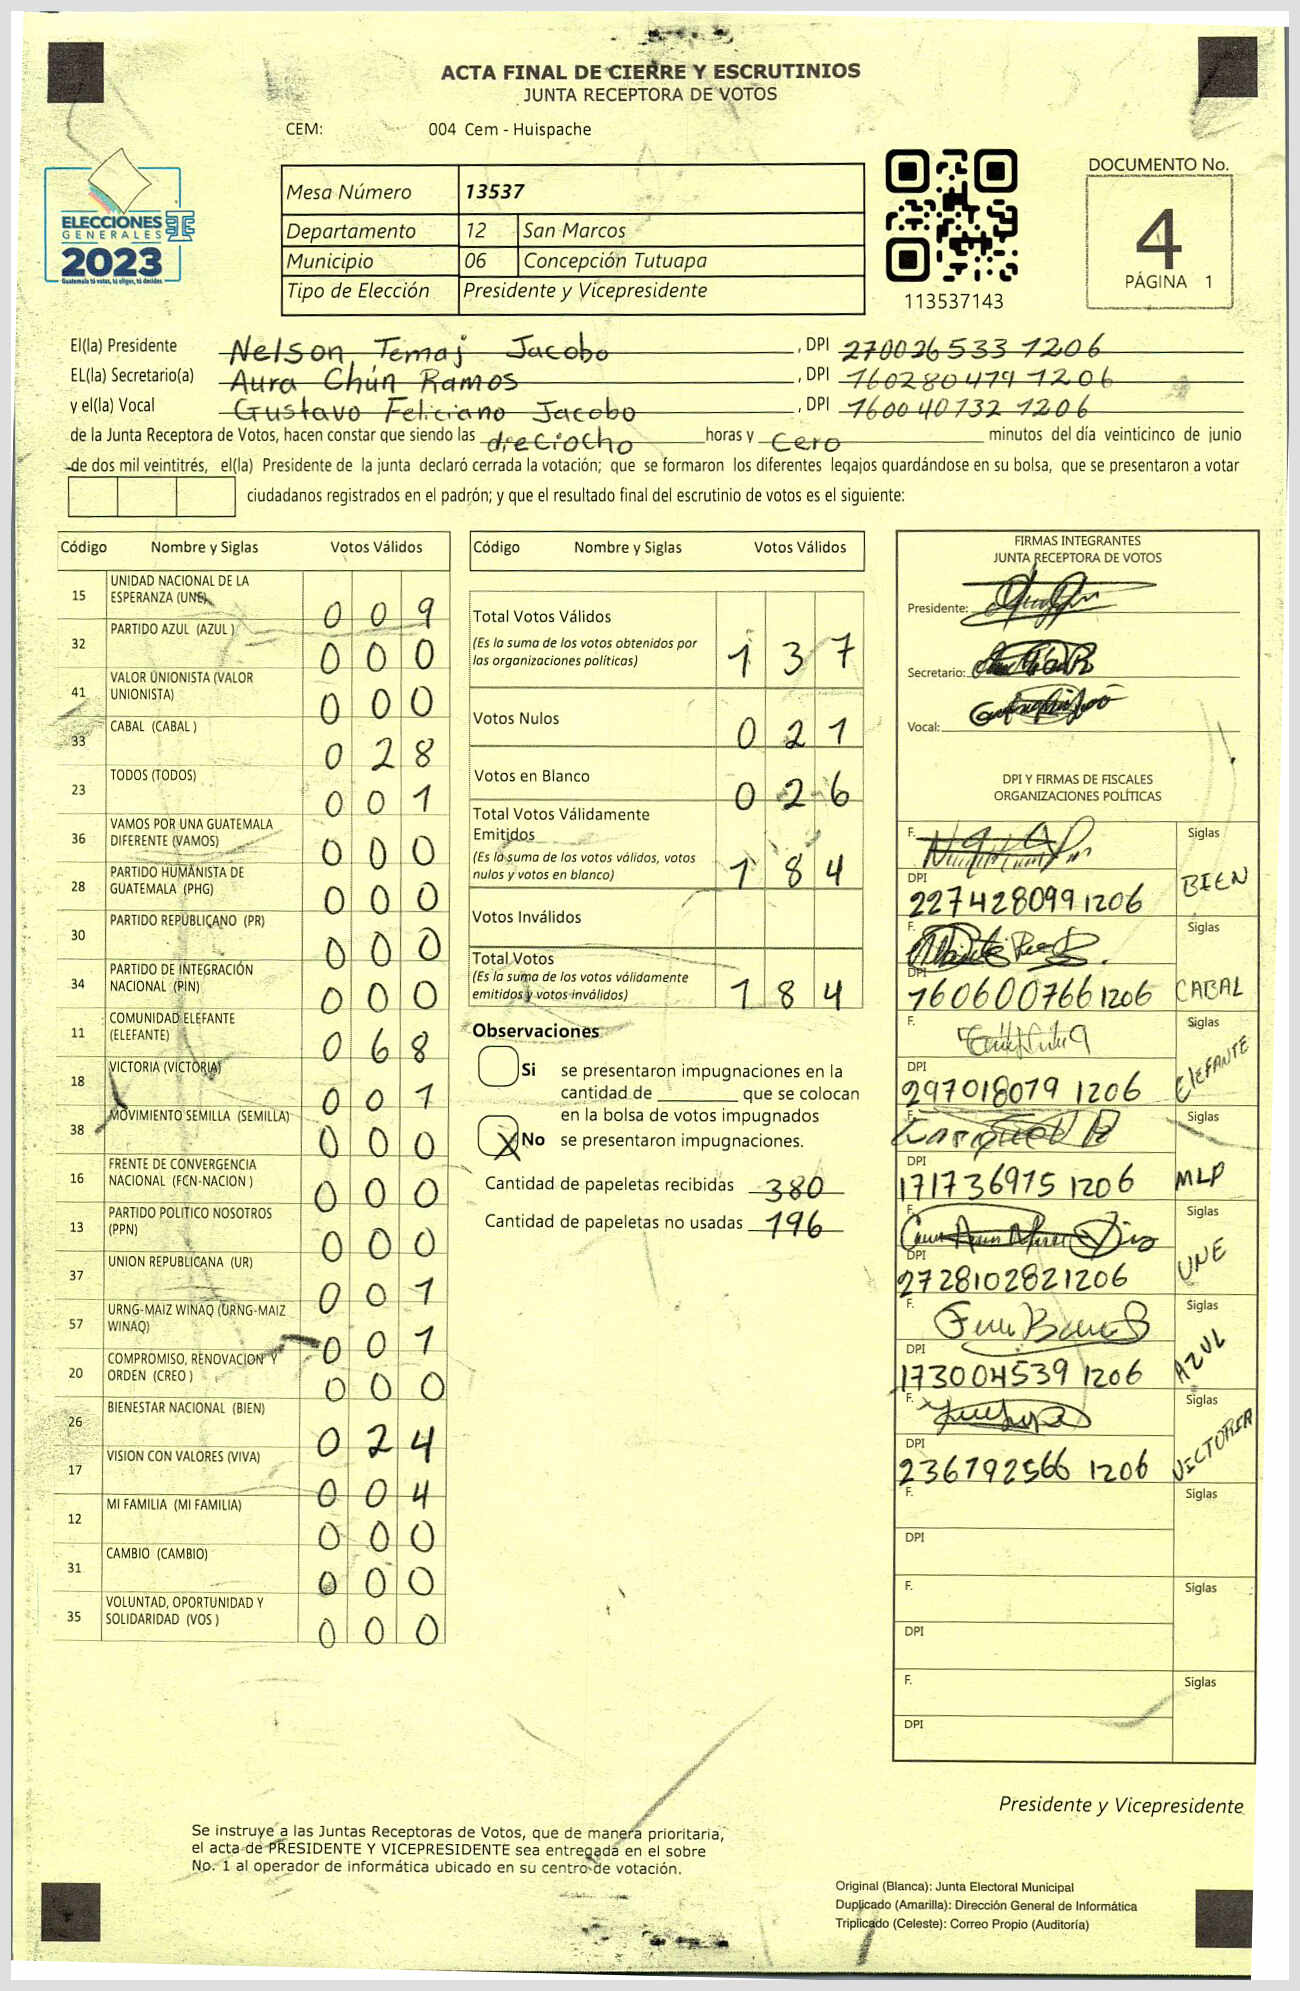 ACTA FINAL DE CIERRE Y ESCRUTINIOS
JUNTA RECEPTORA DE VOTOS
CEM: 004 Cem - Huispache
ELECCIONES
GENERALES
2023
Guatemala tú votas, tú eliges, tú decides
Mesa Número 13537
Departamento 12 San Marcos
Municipio 06 Concepción Tutuapa
Tipo de Elección Presidente y Vicepresidente
113537143
DOCUMENTO No.
4
PÁGINA 1
El(la) Presidente Nelson Temaj Jacobo, DPI 270026533 1206
EL(la) Secretario(a) Aura Chún Ramos, DPI 160280479 1206
y el(la) Vocal Gustavo Feliciano Jacobo, DPI 160040132 1206
de la Junta Receptora de Votos, hacen constar que siendo las dieciocho horas y cero minutos del día veinticinco de junio
de dos mil veintitrés, el(la) Presidente de la junta declaró cerrada la votación; que se formaron los diferentes legajos guardándose en su bolsa, que se presentaron a votar
ciudadanos registrados en el padrón; y que el resultado final del escrutinio de votos es el siguiente:
Código Nombre y Siglas Votos Válidos
15 UNIDAD NACIONAL DE LA
ESPERANZA (UNE) 0 0 9
32 PARTIDO AZUL (AZUL ) 0 0 0
41 VALOR UNIONISTA (VALOR
UNIONISTA) 0 0 0
33 CABAL (CABAL ) 0 2 8
23 TODOS (TODOS) 0 0 1
36 VAMOS POR UNA GUATEMALA
DIFERENTE (VAMOS) 0 0 0
28 PARTIDO HUMANISTA DE
GUATEMALA (PHG) 0 0 0
30 PARTIDO REPUBLICANO (PR) 0 0 0
34 PARTIDO DE INTEGRACIÓN
NACIONAL (PIN) 0 0 0
11 COMUNIDAD ELEFANTE
(ELEFANTE) 0 6 8
18 VICTORIA (VICTORIA) 0 0 1
38 MOVIMIENTO SEMILLA (SEMILLA) 0 0 0
16 FRENTE DE CONVERGENCIA
NACIONAL (FCN-NACION ) 0 0 0
13 PARTIDO POLITICO NOSOTROS
(PPN) 0 0 0
37 UNION REPUBLICANA (UR) 0 0 1
57 URNG-MAIZ WINAQ (URNG-MAIZ
WINAQ) 0 0 1
20 COMPROMISO, RENOVACION Y
ORDEN (CREO ) 0 0 0
26 BIENESTAR NACIONAL (BIEN) 0 2 4
17 VISION CON VALORES (VIVA) 0 0 4
12 MI FAMILIA (MI FAMILIA) 0 0 0
31 CAMBIO (CAMBIO) 0 0 0
35 VOLUNTAD, OPORTUNIDAD Y
SOLIDARIDAD (VOS ) 0 0 0
Código Nombre y Siglas Votos Válidos
Total Votos Válidos
(Es la suma de los votos obtenidos por
las organizaciones políticas) 1 3 7
Votos Nulos 0 2 1
Votos en Blanco 0 2 6
Total Votos Válidamente
Emitidos
(Es la suma de los votos válidos, votos
nulos y votos en blanco) 1 8 4
Votos Inválidos
Total Votos
(Es la suma de los votos válidamente
emitidos y votos inválidos) 1 8 4
Observaciones
Si se presentaron impugnaciones en la
cantidad de ________ que se colocan
en la bolsa de votos impugnados
X No se presentaron impugnaciones.
Cantidad de papeletas recibidas 380
Cantidad de papeletas no usadas 196
FIRMAS INTEGRANTES
JUNTA RECEPTORA DE VOTOS
Presidente:
Secretario:
Vocal:
DPI Y FIRMAS DE FISCALES
ORGANIZACIONES POLÍTICAS
F. Siglas
DPI
227428099 1206 BIEN
F. Siglas
DPI
160600766 1206 CABAL
F. Siglas
DPI
297018079 1206 ELEFANTE
F. Siglas
DPI
171736975 1206 MLP
F. Siglas
DPI
272810282 1206 UNE
F. Siglas
DPI
173004539 1206 AZUL
F. Siglas
DPI
236792566 1206 VICTORIA
F. Siglas
DPI
F. Siglas
DPI
F. Siglas
DPI
Presidente y Vicepresidente
Se instruye a las Juntas Receptoras de Votos, que de manera prioritaria,
el acta de PRESIDENTE Y VICEPRESIDENTE sea entregada en el sobre
No. 1 al operador de informática ubicado en su centro de votación.
Original (Blanca): Junta Electoral Municipal
Duplicado (Amarilla): Dirección General de Informática
Triplicado (Celeste): Correo Propio (Auditoría)